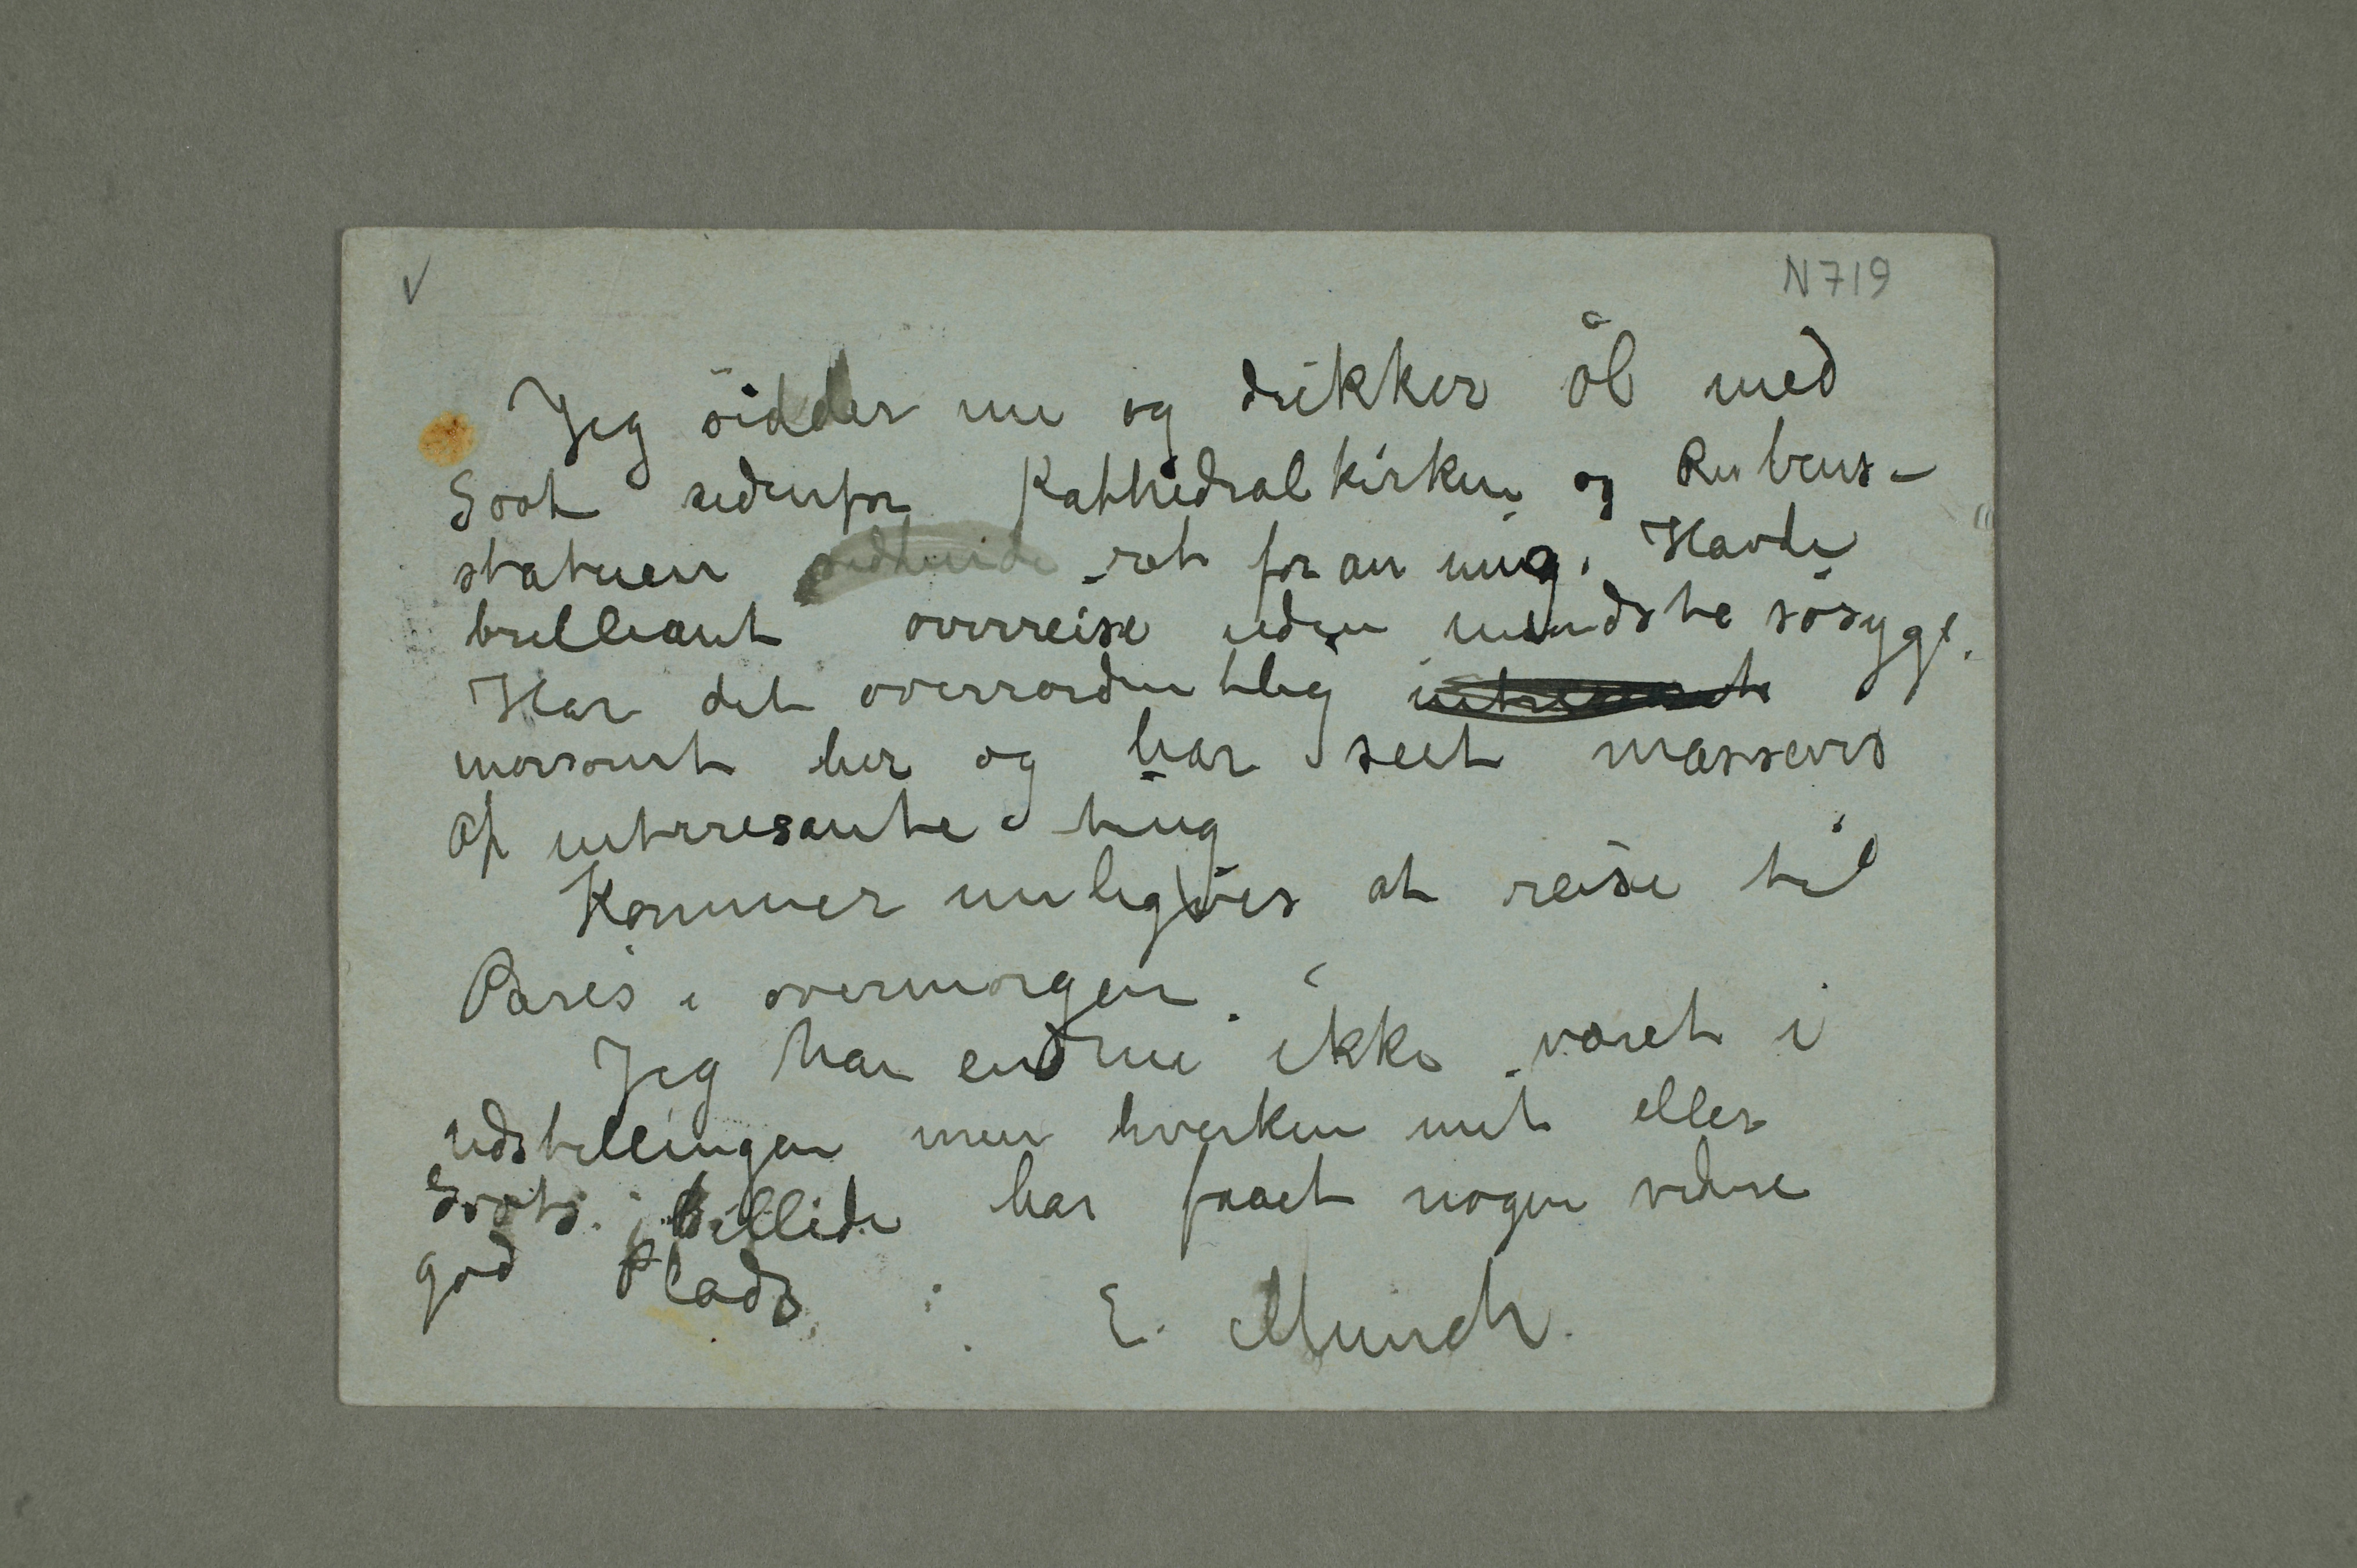 N719
Jeg sidder nu og drikker öl med
Soot udenfor Kathedralkirken og Rubens-
statuen ret foran mig. Havde
brilliant overreise uden mindste sösyge.
Har det overordentlig intresant
morsomt her og har seet massevis
Af intrresante ting
Kommer muligvis at reise til
Paris i overmorgen.
Jeg har endnu ikke været i
udstillingen men hverken mit eller
Soots billede har faaet nogen videre
god Plads.
E. Munch.